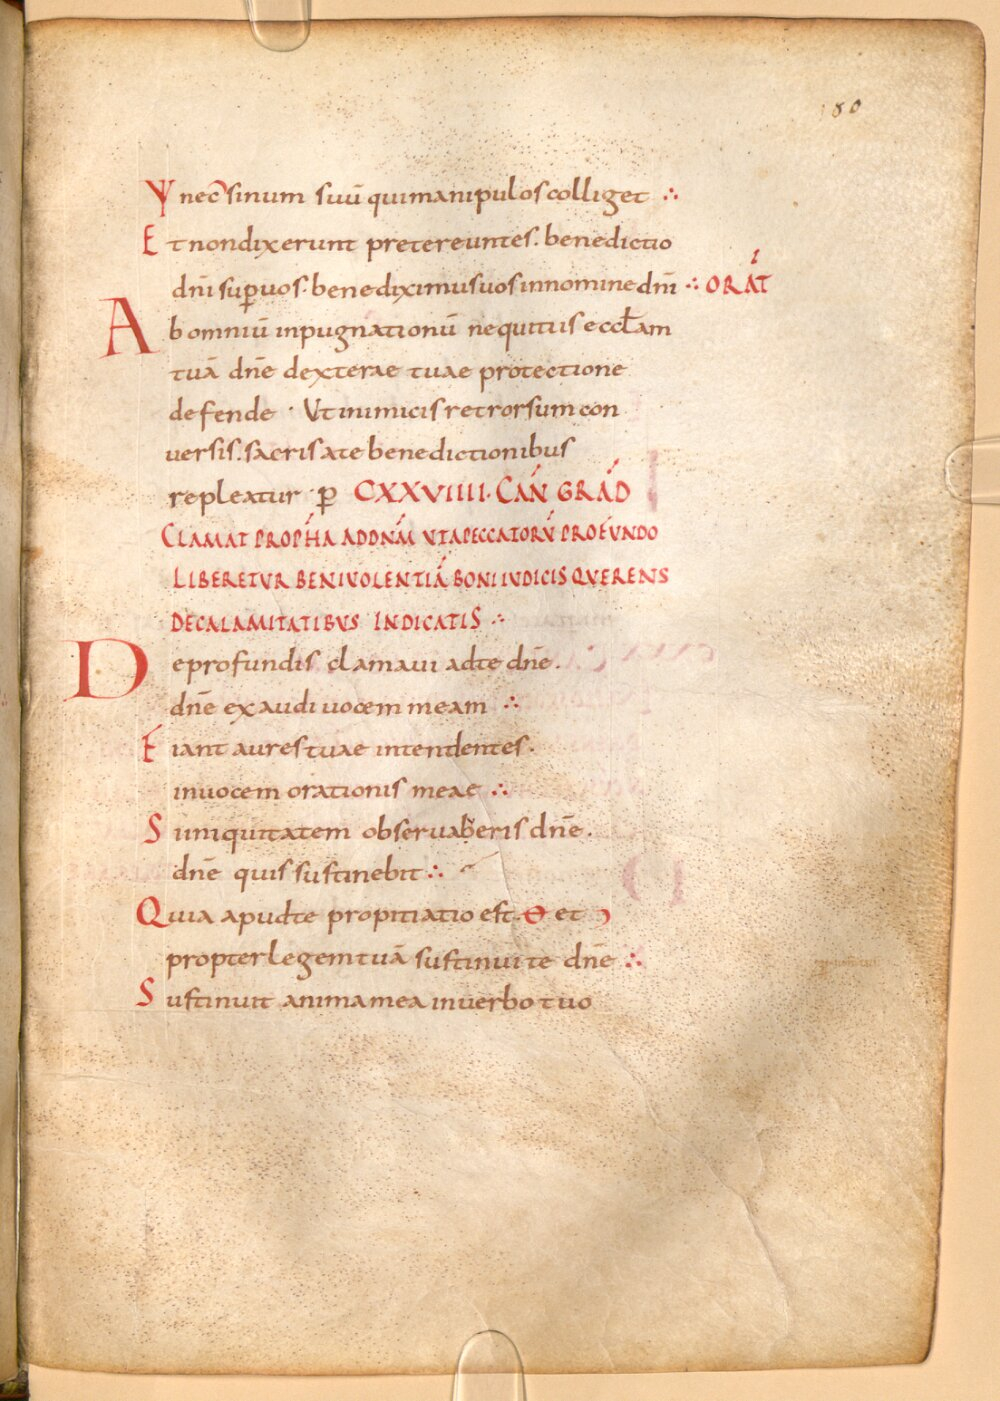 180
Ꝟ nec sinum suū qui manipulos colliget ∴
Et non dixerunt pretereuntes. benedictio
dn̄i sup̱ uos. benediximus uos in nomine dn̄i ∴ ORAT̄
Ab omniū inpugnationū nequitiis eccl̄am
tuā dn̄e dexterae tuae protectione
defende · Ut inimicis retrorsum con
versis. sacrisate benedictionibus
repleatur ꝑ CXXVIIII· CAN̄ GRAD̄
CLAMAT PROPH̄A AD DN̄M UT A PECCATORŪ PROFUNDO
LIBERETUR BENIUOLENTIĀ BONI IUDICIS QUERENS
DE CALAMITATIBUS INDICATIS ∴
De profundis clamaui ad te dn̄e.
dn̄e exaudi uocem meam ∴
Fiant aures tuae intendentes.
in uocem orationis meae ∴
Si iniquitatem obseruaberis dn̄e.
dn̄e quis sustinebit ∴
Quia apud te propitiatio est. et
propter legem tuā sustinui te dn̄e ∴
Sustinuit anima mea in uerbo tuo